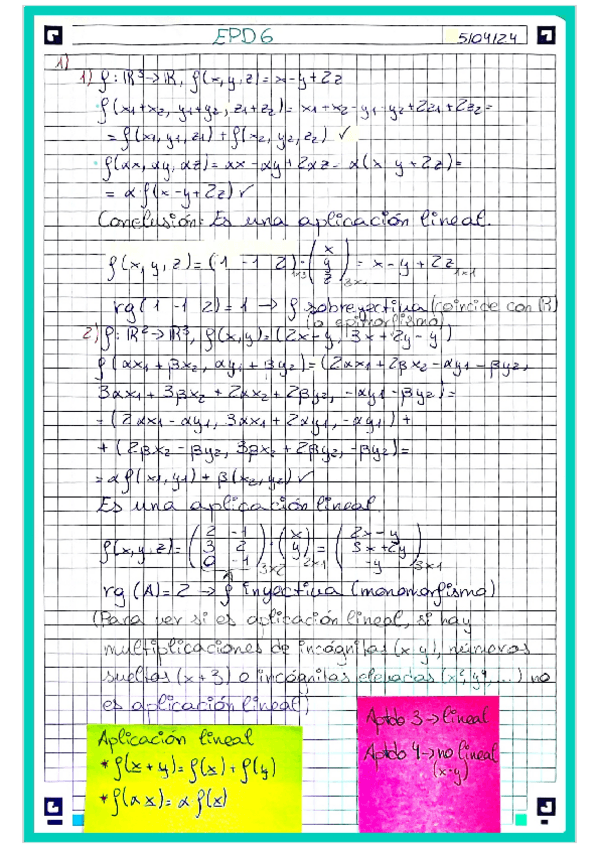 EPD6
5/04/24
1)
1) f: ℝ³→ℝ, f(x,y,z)=x-y+2z
f(x₁+x₂, y₁+y₂, z₁+z₂)= x₁+x₂-y₁-y₂+2z₁+2z₂=
= f(x₁,y₁,z₁) + f(x₂,y₂,z₂) ✓
f(αx, αy, αz)= αx - αy + 2αz = α(x y + 2z)=
= α f(x-y+2z) ✓
Conclusión: Es una aplicación lineal.
f(x,y,z)=(1 -1 2)₁ₓ₃·(x y z)₃ₓ₁ = x-y+2z₁ₓ₁
rg(1 -1 2)=1 → f sobreyectiva (coincide con ℝ)
(o epimorfismo)
2) f: ℝ²→ℝ³, f(x,y)=(2x-y, 3x+2y -y)
f(αx₁+βx₂, αy₁+βy₂)=(2αx₁+2βx₂-αy₁-βy₂,
3αx₁+3βx₂+2αx₂+2βy₂, -αy₁-βy₂)=
=(2αx₁-αy₁, 3αx₁+2αy₁, -αy₁)+
+(2βx₂-βy₂, 3βx₂+2βy₂, -βy₂)=
= α f(x₁,y₁) + β(x₂,y₂) ✓
Es una aplicación lineal
f(x,y,z)=(2 -1
3 2
0 -1)₃ₓ₂·(x
y)₂ₓ₁=(2x-y
3x+2y
-y)₃ₓ₁
rg(A)=2 → f inyectiva (monomorfismo)
(Para ver si es aplicación lineal, si hay
multiplicaciones de incógnitas (x·y), números
sueltos (x+3) o incógnitas elevadas (x², y⁹, ...) no
es aplicación lineal)
Aplicación lineal
* f(x+y)=f(x)+f(y)
* f(αx)= α f(x)
Aptdo 3→lineal
Aptdo 4→no lineal
(x·y)